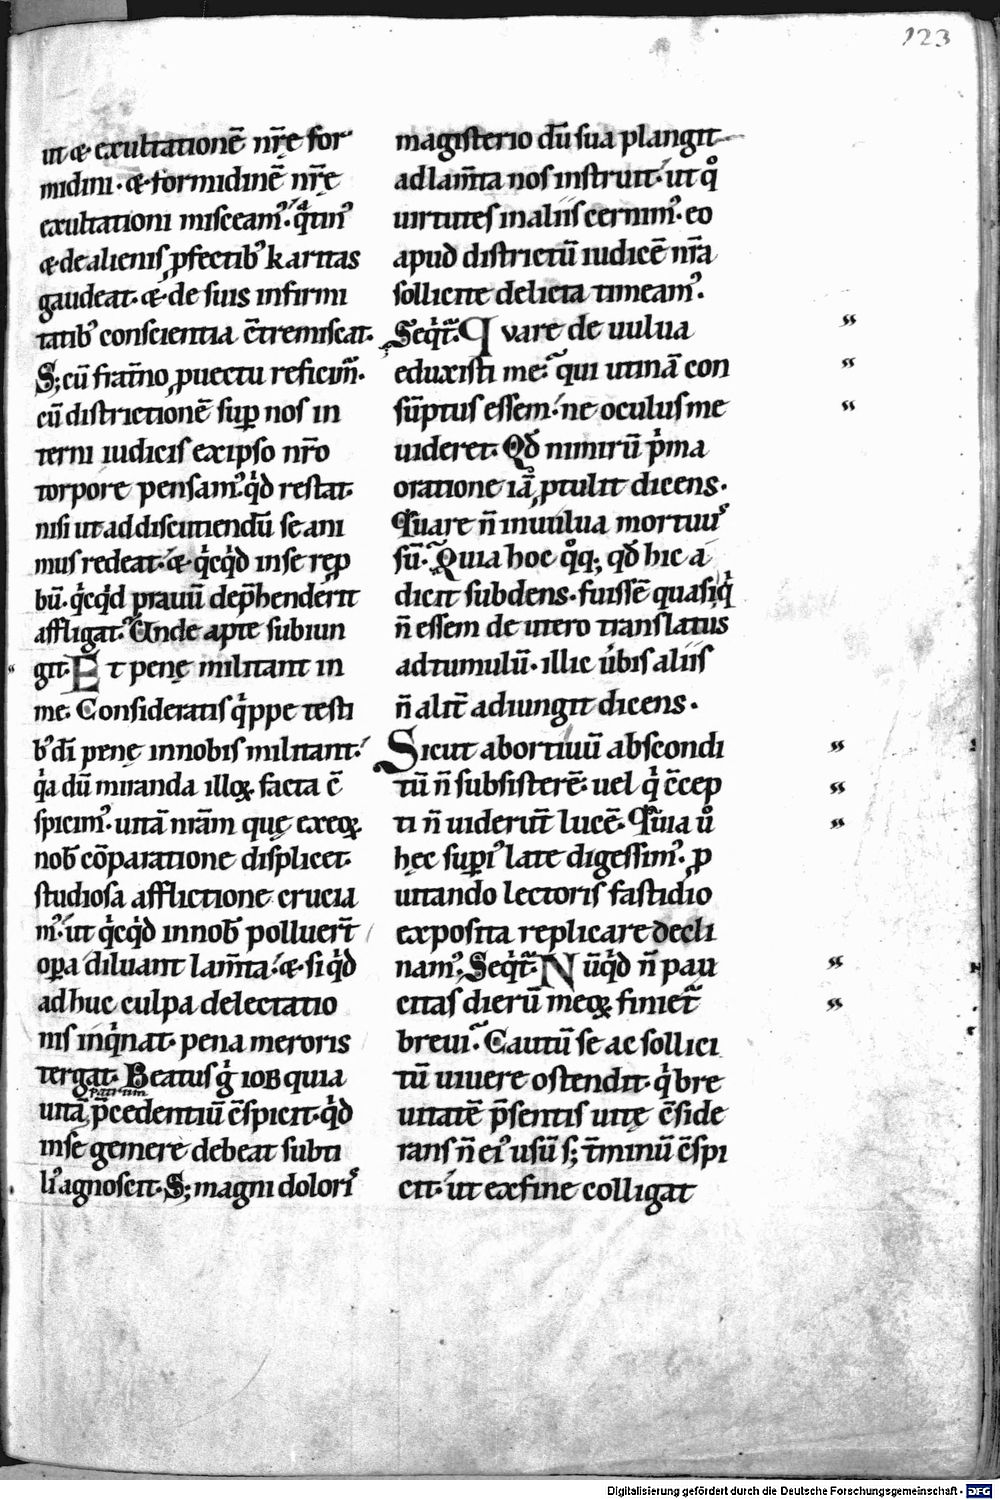 123
ut & exultationē nr̄ę for
midini · & formidinē nr̄ę
exultationi misceam᷒· q̄tin᷒
& de alienis ꝓfectib᷒ karitas
gaudeat · & de suis infirmi
tatib᷒ conscientia c̄tremiscat.
S; cū fratn̄o ꝓuectu reficim̄·
cū districtionē suꝑ nos in
terni iudicis ex ipso nr̄o
torpore pensam᷒· qͥd restat·
nisi ut ad discutiendū se ani
mus redeat · & qͥcqͥd in se rep
bū· qͥcqͥd prauū dep̄henderit
affligat· Unde apte subiun
git· Et penę militant in
me· Consideratis qͥppe testi
b᷒ dī penę in nobis militant·
qͥa dū miranda illoꝝ facta c̄
spicim᷒· uitā nr̄am quę ex eoꝝ
nob̄ cōparatione displicet·
studiosa afflictione crucia
m᷒· ut qͥcqͥd in nob̄ polluer̄t
oꝑa diluant lam̄ta · & si qͥd
adhuc culpa delectatio
nis inqͥnat· pena meroris
tergat· Beatus gͥ IOB quia
patrum
uitā p̄cedentiū c̄spicit· qͥd
in se gemere debeat subti
li᷒ agnoscit· S; magni doloris
magisterio dū sua plangit
ad lam̄ta nos instruit· ut qͦ
uirtutes in aliis cernim᷒· eo
apud districtū iudicē nr̄a
sollicite delicta timeam᷒·
Seqͥt᷑· Quare de uulua
eduxisti me· qui utinā con
sūptus essem· ne oculus me
uideret· Qđ nimirū pͥma
oratione iā ꝓtulit dicens·
Quare n̄ in uulua mortuus
sū· Quia hoc qͦq;, qđ hic a
dicit subdens· fuissē quasi qͥ
n̄ essem de utero translatus
ad tumulū· illic ūbis aliis
n̄ alit̄ adiungit dicens·
Sicut abortiuū abscondi
tū n̄ subsisterē· uel qͥ c̄cep
ti n̄ uiderūt lucē· Quia ūͦ
hęc superi᷒ late digessim᷒· ꝓ
uitando lectoris fastidio
exposita replicare decli
nam᷒· Seqͥt᷑· Nūqͥd n̄ pau
citas dierū meoꝝ finiet᷑
breui· Cautū se ac sollici
tū uiuere ostendit· qͥ bre
uitatē p̄sentis uitę c̄side
rans n̄ ei᷒ usū s; t̄minū c̄spi
cit· ut ex fine colligat
Digitalisierung gefördert durch die Deutsche Forschungsgemeinschaft - DFG